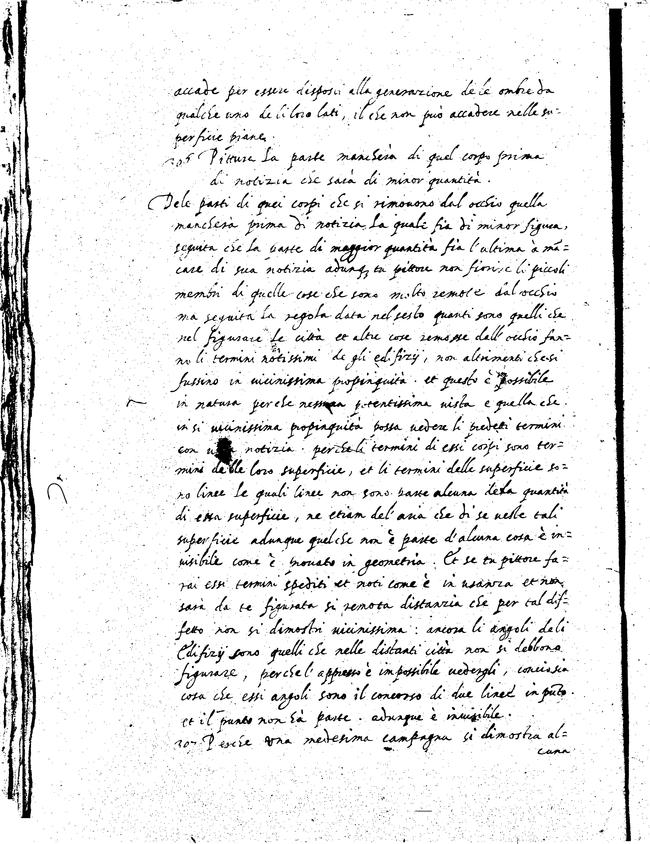 accade per essere disposti alla generazione de le ombre da
qualche uno de li loro lati, il che non può accadere nelle su=
perficie piane.
Pittura la parte mancherà di quel corpo prima
di notizia che sarà di minor quantità.
Dele parti di quei corpi che si rimouono dal occhio quella
mancherà prima di notizia, la quale fia di minor figura,
seguita che la parte di maggior quantità fia l'ultima à mã=
care di sua notizia adunq, tu pittore non finire li piccoli
membri di quelle cose che sono molto remote dal occhio
ma seguita la regola data nel sesto quanti sono quelli che
nel figurare le città et altre cose remosse dall'occhio fan=
no li termini notissimi de gli edifizij, non altrimenti che si
fussino in uicinissima propinquità. et questo è possibile
in natura perche nessuna potentissima uista e quella che
in si uicinissima propinquità possa uedere li predetti termini
con notizia. perche li termini di essi corpi sono ter=
mini delle loro superficie, et li termini delle superficie so=
no linee le quali linee non sono parte alcuna dela quantità
di essa superficie, ne etiam del'aria che di se ueste tali
superficie adunque quel che non è parte d'alcuna cosa è in=
uisibile come è prouato in geometria. Et se tu pittore fa=
rai essi termini spediti et noti come è in usanza et non
sarà da te figurata si remota distanzia che per tal dif=
fetto non si dimostri uicinissima: ancora li angoli deli
Edifizij sono quelli che nelle distanti città non si debbono
figurare, perche l'appresso è impossibile uedergli, conciosia
cosa che essi angoli sono il concorso di due linee in pũto.
et il punto non hà parte. adunque è inuisibile.
Perche una medesima campagna si dimostra al=
cuna